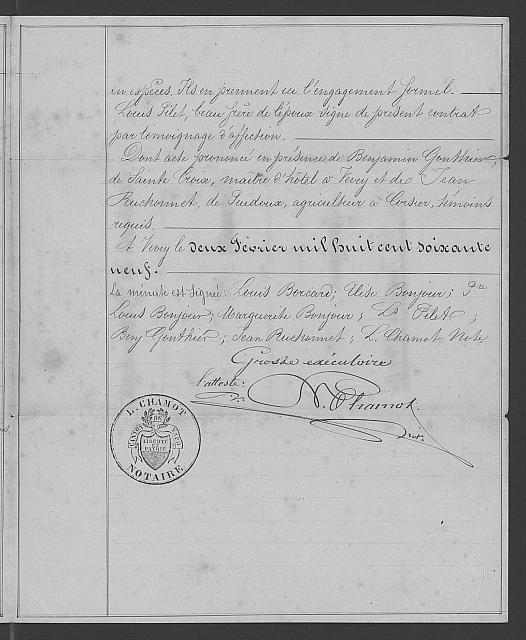 en espèces. Ils en prennent ici l'engagement formel.
Louis Pilet, beau frère de l'époux signe de présent contrat
par témoignage d'affection.
Dont acte prononcé en présence de Benjamin Gonthier,
de Sainte Croix, maître d'hôtel à Vevey et de Jean
Ruchonnet, de Puidoux, agriculteur à Corsier, témoins
requis.
A Vevey le deux Février mil huit cent soixante
neuf.
La minute est signé: Louis Boccard; Elise Bonjour; Pre
Louis Bonjour; Marguerite Bonjour; Ls Pilet;
Benj Gonthier; Jean Ruchonnet; L. Chamot Note
Grosse exécutoire
l'atteste:
L. Chamot.
Not.
L. CHAMOT
CANTON DE VAUD
LIBERTÉ
ET
PATRIE
NOTAIRE